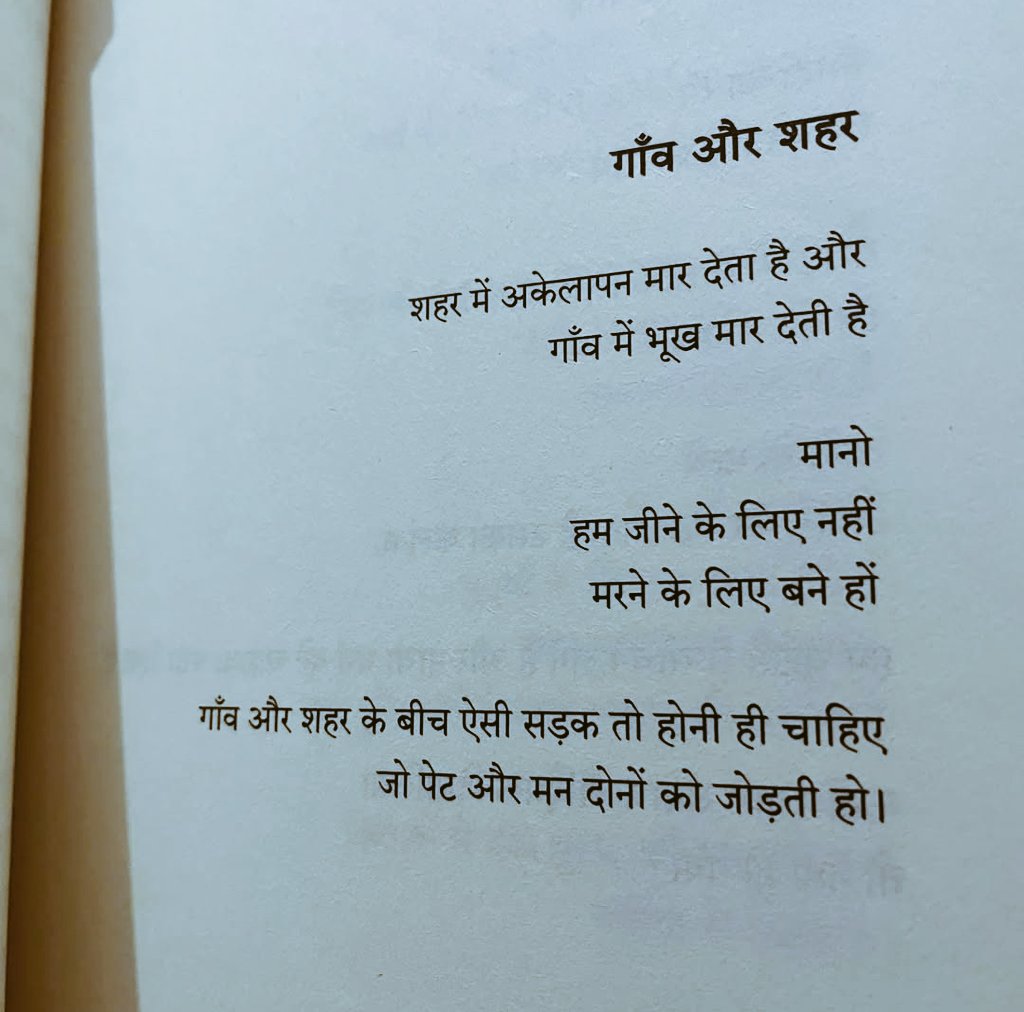 गाँव और शहर
शहर में अकेलापन मार देता है और
गाँव में भूख मार देती है
मानो
हम जीने के लिए नहीं
मरने के लिए बने हों
गाँव और शहर के बीच ऐसी सड़क तो होनी ही चाहिए
जो पेट और मन दोनों को जोड़ती हो।